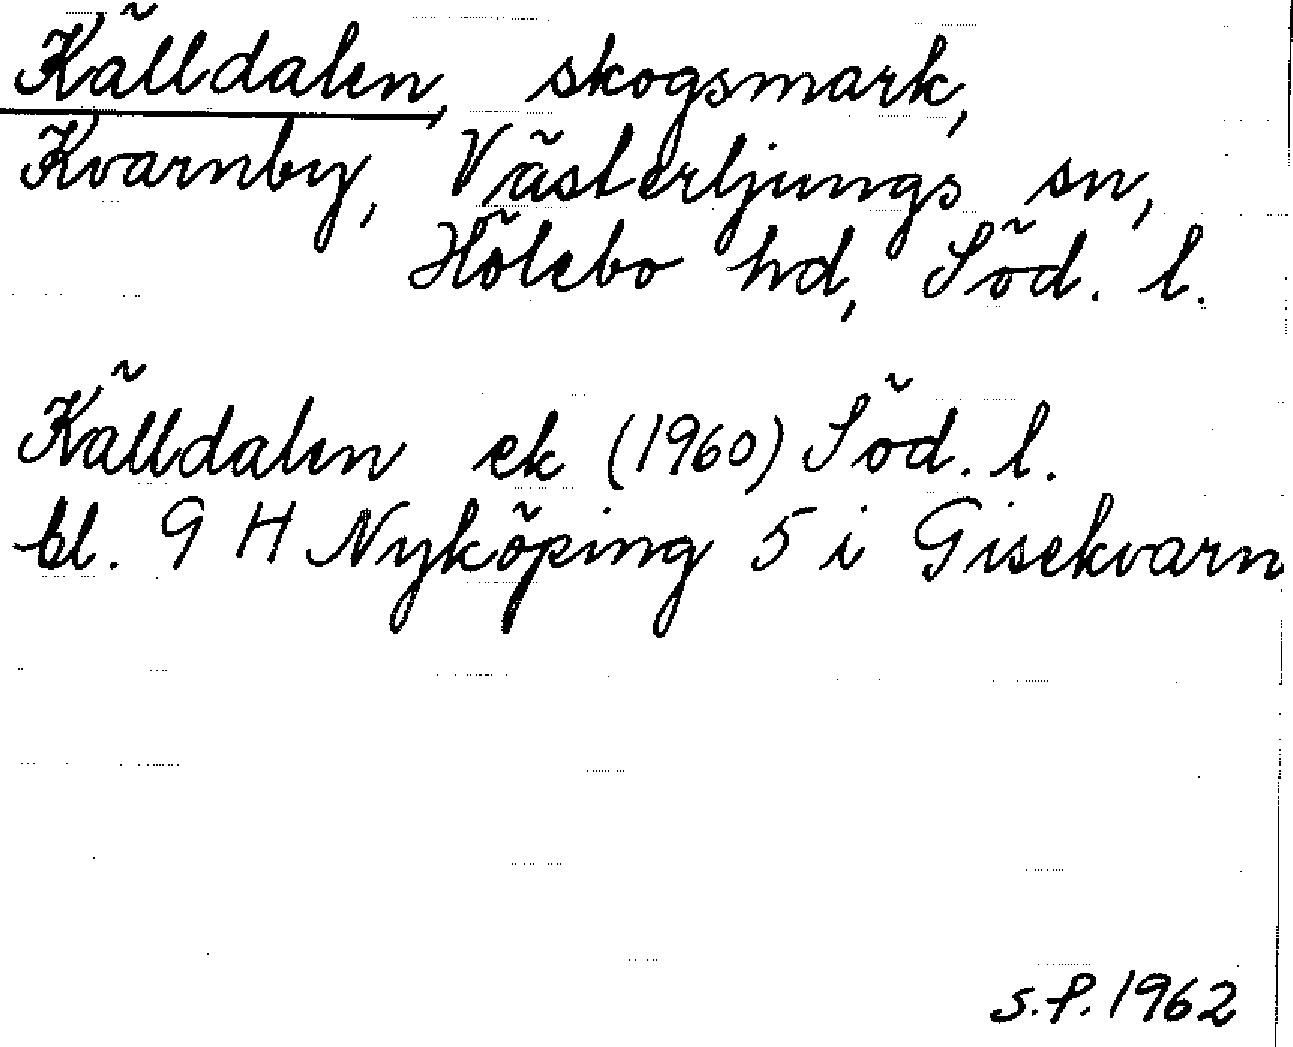 Källdalen, skogsmark,
Kvarnby, Västerljungs sn,
Hölebo hd, Söd. l.
Källdalen ek (1960) Söd. l.
bl. 9 H Nyköping 5 i Gisekvarn
S.P. 1962